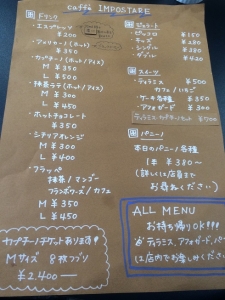 caffé IMPOSTARE
ドリンク
・エスプレッソ
¥200
・アメリカーノ (ホット/アイス)
¥300
・カプチーノ (ホット/アイス)
M ¥350
L ¥500
・抹茶ラテ (ホット/アイス)
M ¥350
L ¥500
・ホットチョコレート
¥350
・シチリアオレンジ
M ¥300
L ¥400
・フラッペ
抹茶/マンゴー
フランボワーズ/カフェ
M ¥350
L ¥450
カプチーノチケットあります!
Mサイズ 8枚つづり
¥2,400-
ジェラート
・ピッコロ ¥150
・キッズ ¥280
・シングル ¥380
・ダブル ¥420
スイーツ
・ティラミス ¥500
カフェ/イチゴ
・ケーキ各種 ¥350
・アフォガード ¥350
パニーノ
本日のパニーノ各種
1本 ¥380～
(詳しくは店員まで
お尋ねください)
ALL MENU
お持ち帰りOK!!!!
ティラミス,アフォガード,パニ
は店内でお楽しみください